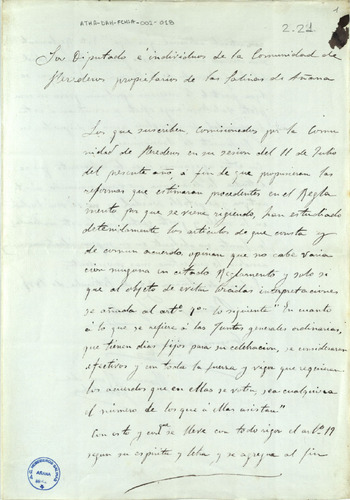 ATHA-DAH-FCHIA-001-01B
2.21
1
Sor Diputado é individuos de la Comunidad de
Herederos propietarios de las Salinas de Añana
Los que suscriben, comisionados por la Comu-
nidad de Herederos en su sesion del 11 de Julio
del presente año, a fin de que propusieran las
reformas que estimaran procedentes en el Regla-
mento por que se viene rigiendo, han estudiado
detenidamente los articulos de que consta y
de comun acuerdo opinan que no cabe varia
cion ninguna en citado Reglamento y solo se
que al objeto de evitar torcidas interpretaciones
se añada al artº 7º lo siguiente "En cuanto
á lo que se refiere á las Juntas generales ordinarias,
que tienen dias fijos para su celebracion, se consideraran
efectivos y con toda la fuerza y vigor que requieren
los acuerdos que en ellas se voten, sea cualquiera
el número de los que á ellas asistan"
Con esto y con que se lleve con todo rigor el artº 19
segun su espiritu y letra y se agregue al fin
AÑANA